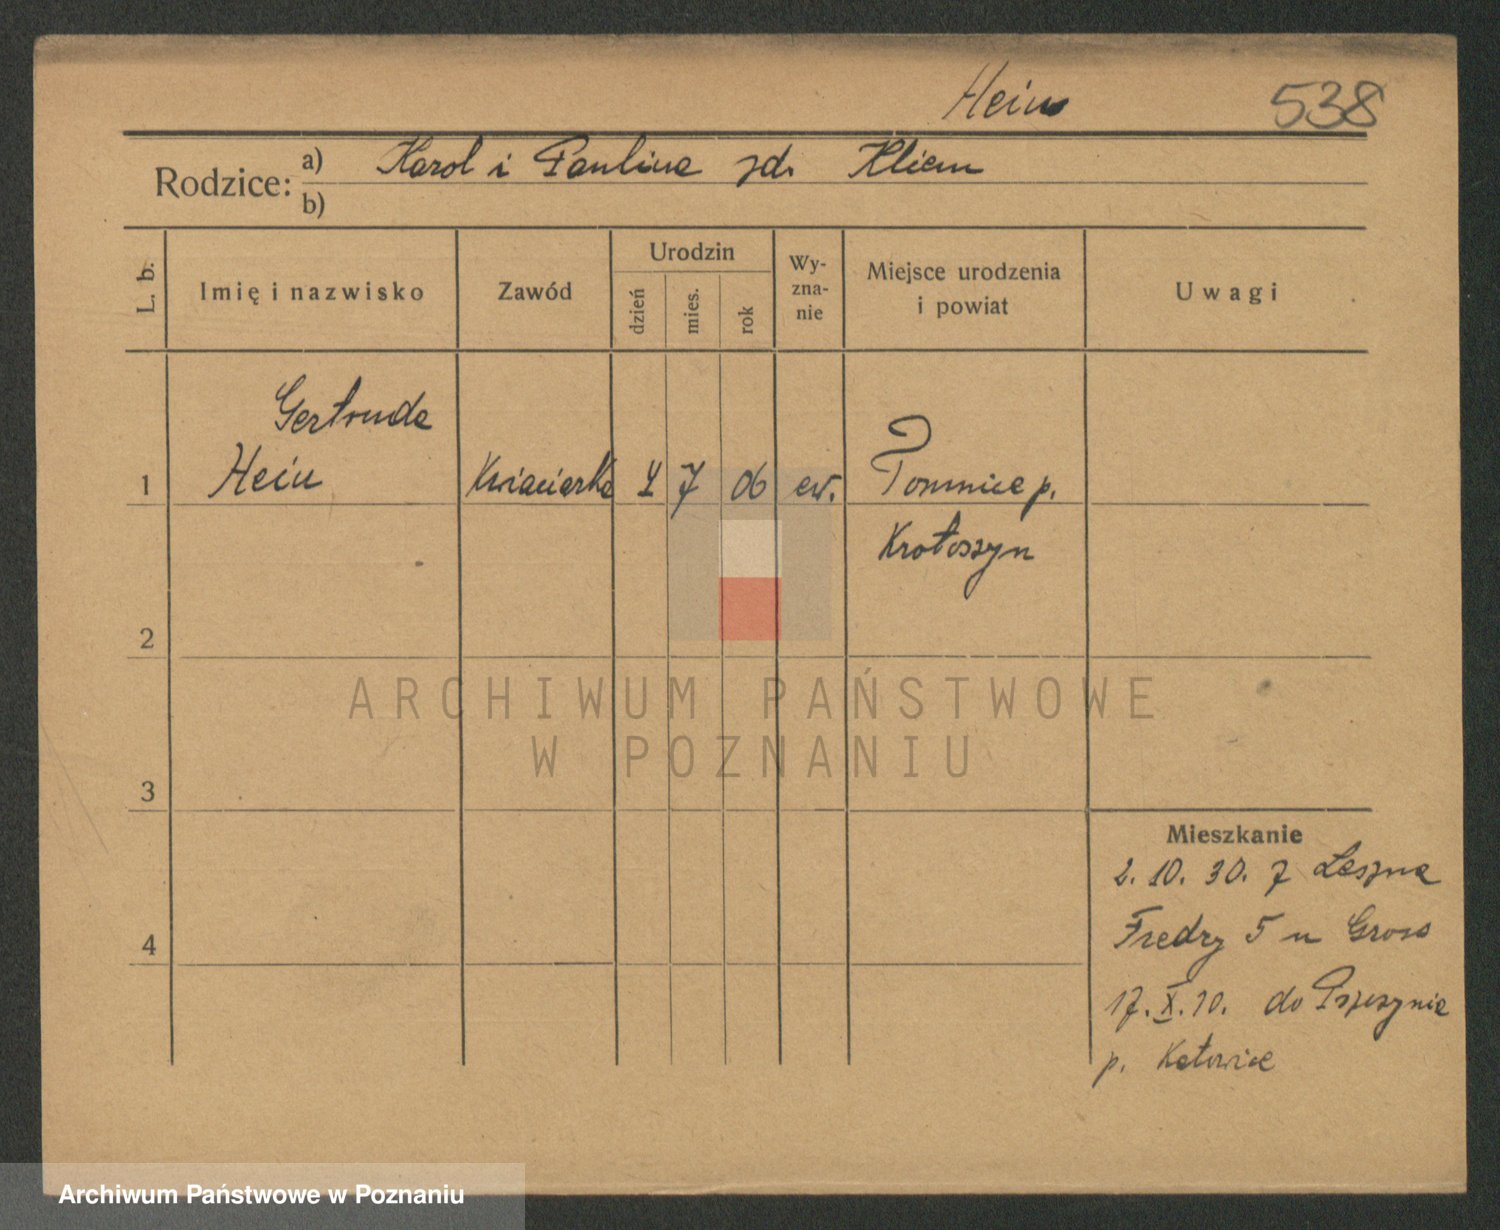 Hein 538
Rodzice: a) Karol i Paulina zd. Kliem
b)
L. b. Imię i nazwisko Zawód Urodzin dzień mies. rok Wyznanie Miejsce urodzenia i powiat Uwagi
Gertruda
1 Hein Kwiaciarka 4 7 06 ew. Tomnice p.
Krotoszyn
2
3
Mieszkanie
2. 10. 30. z Leszna
4 Fredry 5 u Gross
17. X. 30. do
p. Katowice
ARCHIWUM PAŃSTWOWE
W POZNANIU
Archiwum Państwowe w Poznaniu